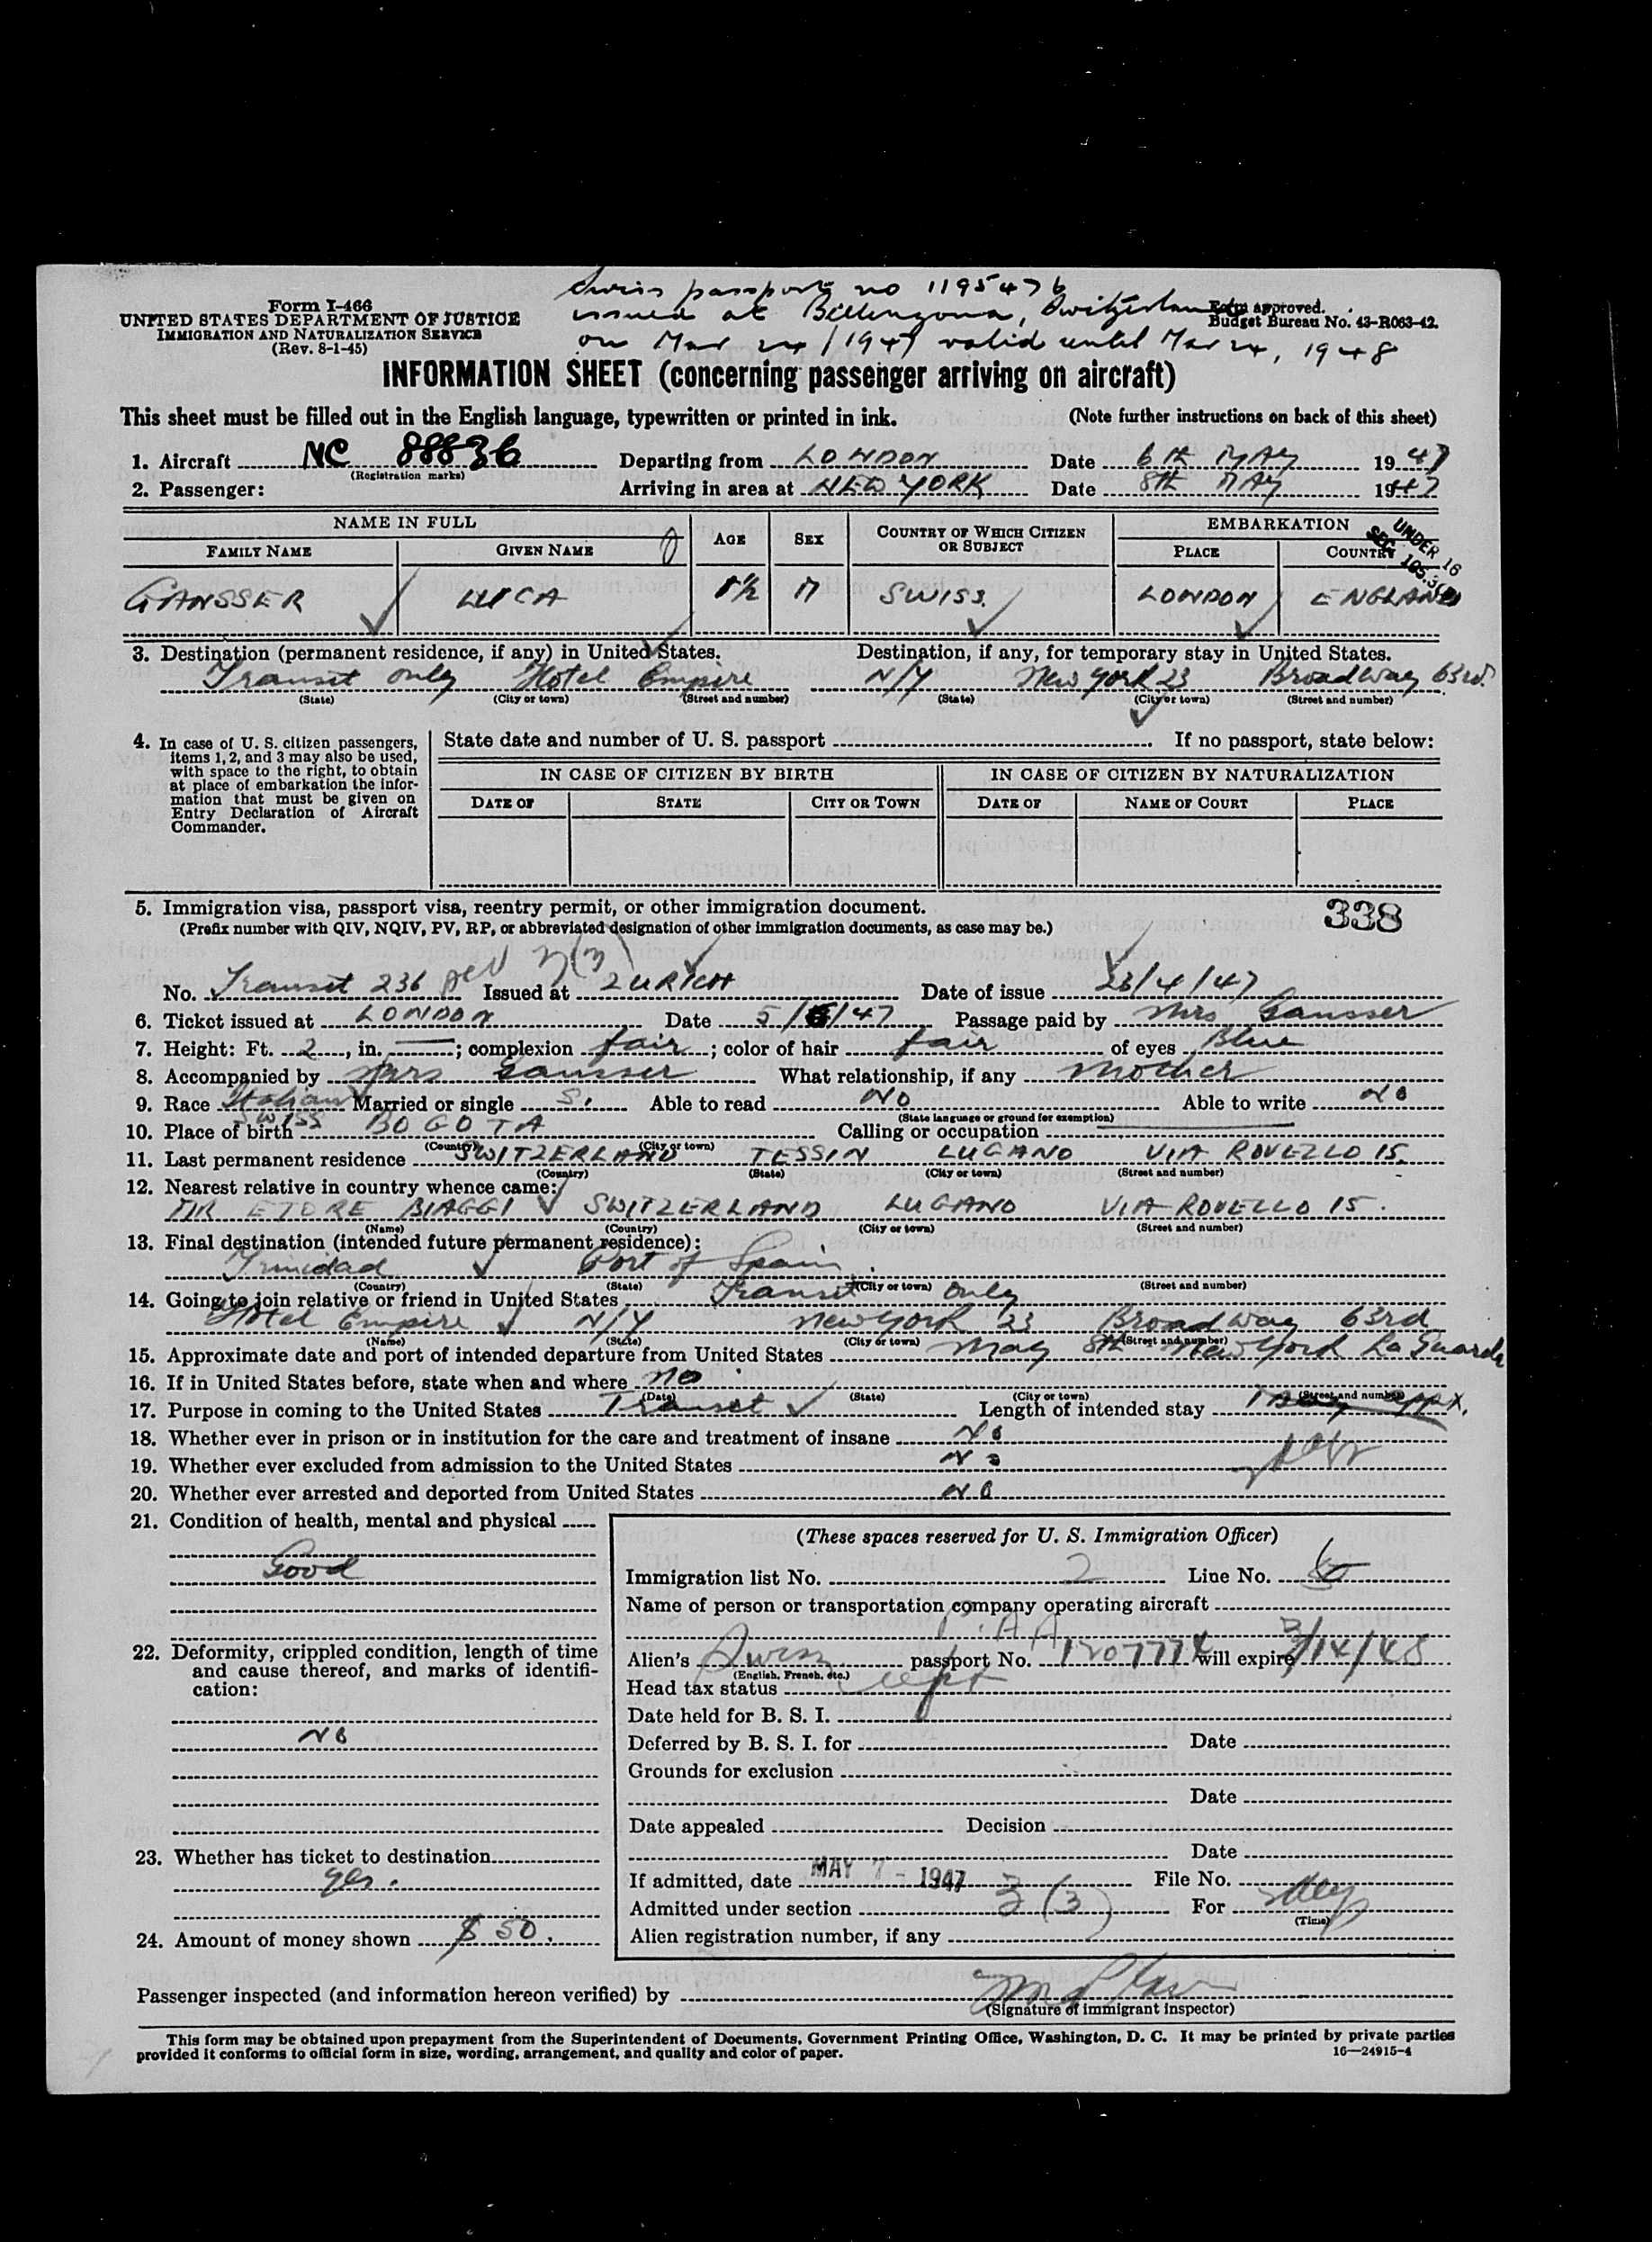 Swiss passport no 1195476
Form I-466
UNITED STATES DEPARTMENT OF JUSTICE
IMMIGRATION AND NATURALIZATION SERVICE
(Rev. 8-1-45)
issued at Bellinzona, Switzerland
Form approved.
Budget Bureau No. 43-R063-42.
on Mar 24/1947 valid until Mar 24, 1948
INFORMATION SHEET (concerning passenger arriving on aircraft)
This sheet must be filled out in the English language, typewritten or printed in ink. (Note further instructions on back of this sheet)
1. Aircraft NC 88836 Departing from LONDON Date 6th MAY 1947
(Registration marks)
2. Passenger: Arriving in area at NEW YORK Date 8th MAY 1947
NAME IN FULL AGE SEX COUNTRY OF WHICH CITIZEN OR SUBJECT EMBARKATION
FAMILY NAME GIVEN NAME PLACE COUNTRY
UNDER 16
SEC. 165.3
GANSSER LUCA 1½ M SWISS. LONDON ENGLAND
3. Destination (permanent residence, if any) in United States. Destination, if any, for temporary stay in United States.
Transit only Hotel Empire N/Y New York 23 Broadway 63rd.
(State) (City or town) (Street and number) (State) (City or town) (Street and number)
4. In case of U. S. citizen passengers, items 1, 2, and 3 may also be used, with space to the right, to obtain at place of embarkation the information that must be given on Entry Declaration of Aircraft Commander.
State date and number of U. S. passport If no passport, state below:
IN CASE OF CITIZEN BY BIRTH IN CASE OF CITIZEN BY NATURALIZATION
DATE OF STATE CITY OR TOWN DATE OF NAME OF COURT PLACE
5. Immigration visa, passport visa, reentry permit, or other immigration document. 338
(Prefix number with QIV, NQIV, PV, RP, or abbreviated designation of other immigration documents, as case may be.)
No. Transit 236 Issued at ZURICH Date of issue 23/4/47
6. Ticket issued at LONDON Date 5/5/47 Passage paid by Mrs Gansser
7. Height: Ft. 2, in. —; complexion fair; color of hair fair of eyes Blue
8. Accompanied by Mrs Gansser What relationship, if any Mother
9. Race Italian Married or single S. Able to read No Able to write No
SWISS (State language or ground for exemption)
10. Place of birth BOGOTA Calling or occupation
(Country) (City or town)
11. Last permanent residence SWITZERLAND TESSIN LUGANO VIA ROVELLO 15.
(Country) (State) (City or town) (Street and number)
12. Nearest relative in country whence came:
MR ETORE BIAGGI SWITZERLAND LUGANO VIA ROVELLO 15.
(Name) (Country) (City or town) (Street and number)
13. Final destination (intended future permanent residence):
Trinidad Port of Spain.
(Country) (State) (City or town) (Street and number)
14. Going to join relative or friend in United States Transit only
Hotel Empire N/Y New York 23 Broadway 63rd
(Name) (State) (City or town) (Street and number)
15. Approximate date and port of intended departure from United States May 8th New York La Guardia
16. If in United States before, state when and where no
(Date) (State) (City or town) (Street and number)
17. Purpose in coming to the United States Transit Length of intended stay 1 Day appx.
18. Whether ever in prison or in institution for the care and treatment of insane No
19. Whether ever excluded from admission to the United States No
20. Whether ever arrested and deported from United States No
21. Condition of health, mental and physical
Good
22. Deformity, crippled condition, length of time and cause thereof, and marks of identification:
No
23. Whether has ticket to destination
yes.
24. Amount of money shown $50.
(These spaces reserved for U. S. Immigration Officer)
Immigration list No. 2 Line No. 6
Name of person or transportation company operating aircraft
P.A.A
Alien's Swiss passport No. 1207774 will expire 3/14/48
(English, French, etc.)
Head tax status
Date held for B. S. I.
Deferred by B. S. I. for Date
Grounds for exclusion
Date
Date appealed Decision
Date
If admitted, date MAY 7 - 1947 File No.
Admitted under section 3(3) For
(Time)
Alien registration number, if any
Passenger inspected (and information hereon verified) by
(Signature of immigrant inspector)
This form may be obtained upon prepayment from the Superintendent of Documents, Government Printing Office, Washington, D. C. It may be printed by private parties
provided it conforms to official form in size, wording, arrangement, and quality and color of paper. 16—24915-4